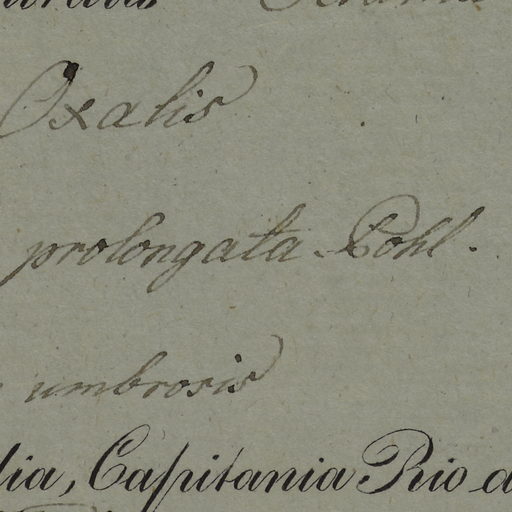 Oxalis
prolongata Pohl.
umbrosis
lia, Capitania Rio d